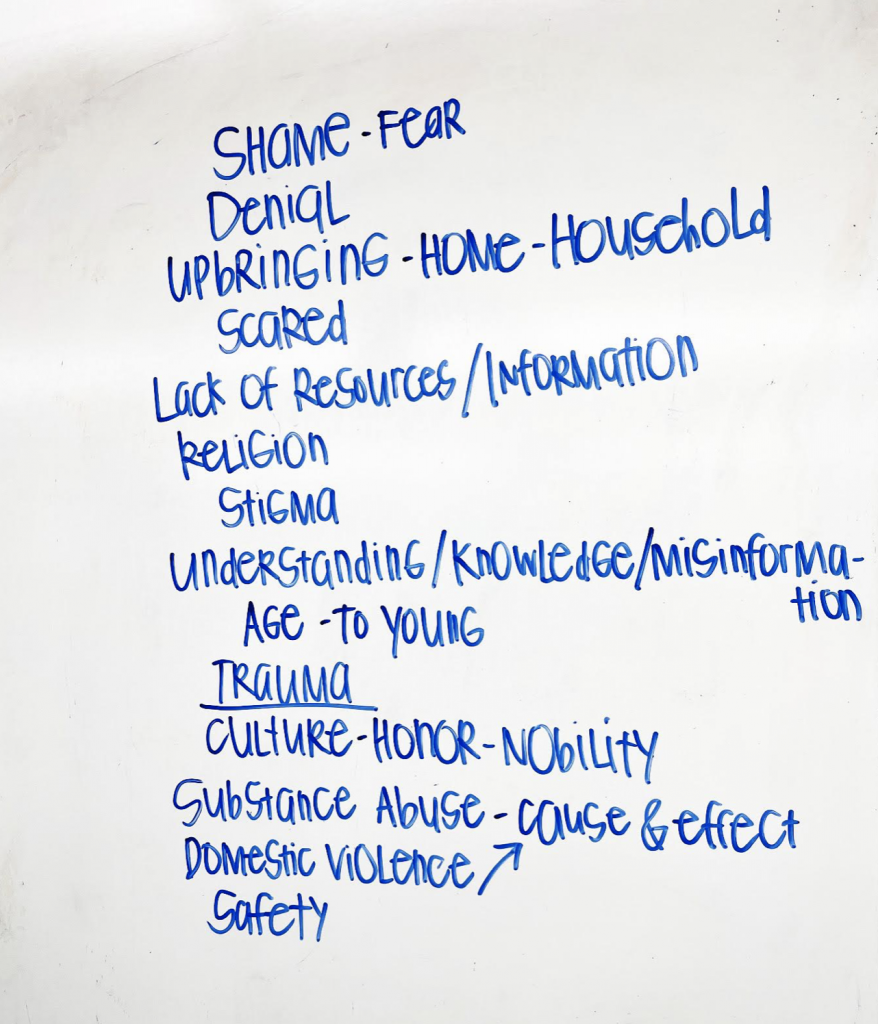 SHAME - FEAR
DENIAL
UPBRINGING - HOME - HOUSEHOLD
SCARED
LACK OF RESOURCES / INFORMATION
RELIGION
STIGMA
UNDERSTANDING / KNOWLEDGE / MISINFORMA-
TION
AGE - TO YOUNG
TRAUMA
CULTURE - HONOR - NOBILITY
SUBSTANCE ABUSE - CAUSE & EFFECT
DOMESTIC VIOLENCE ↗
SAFETY